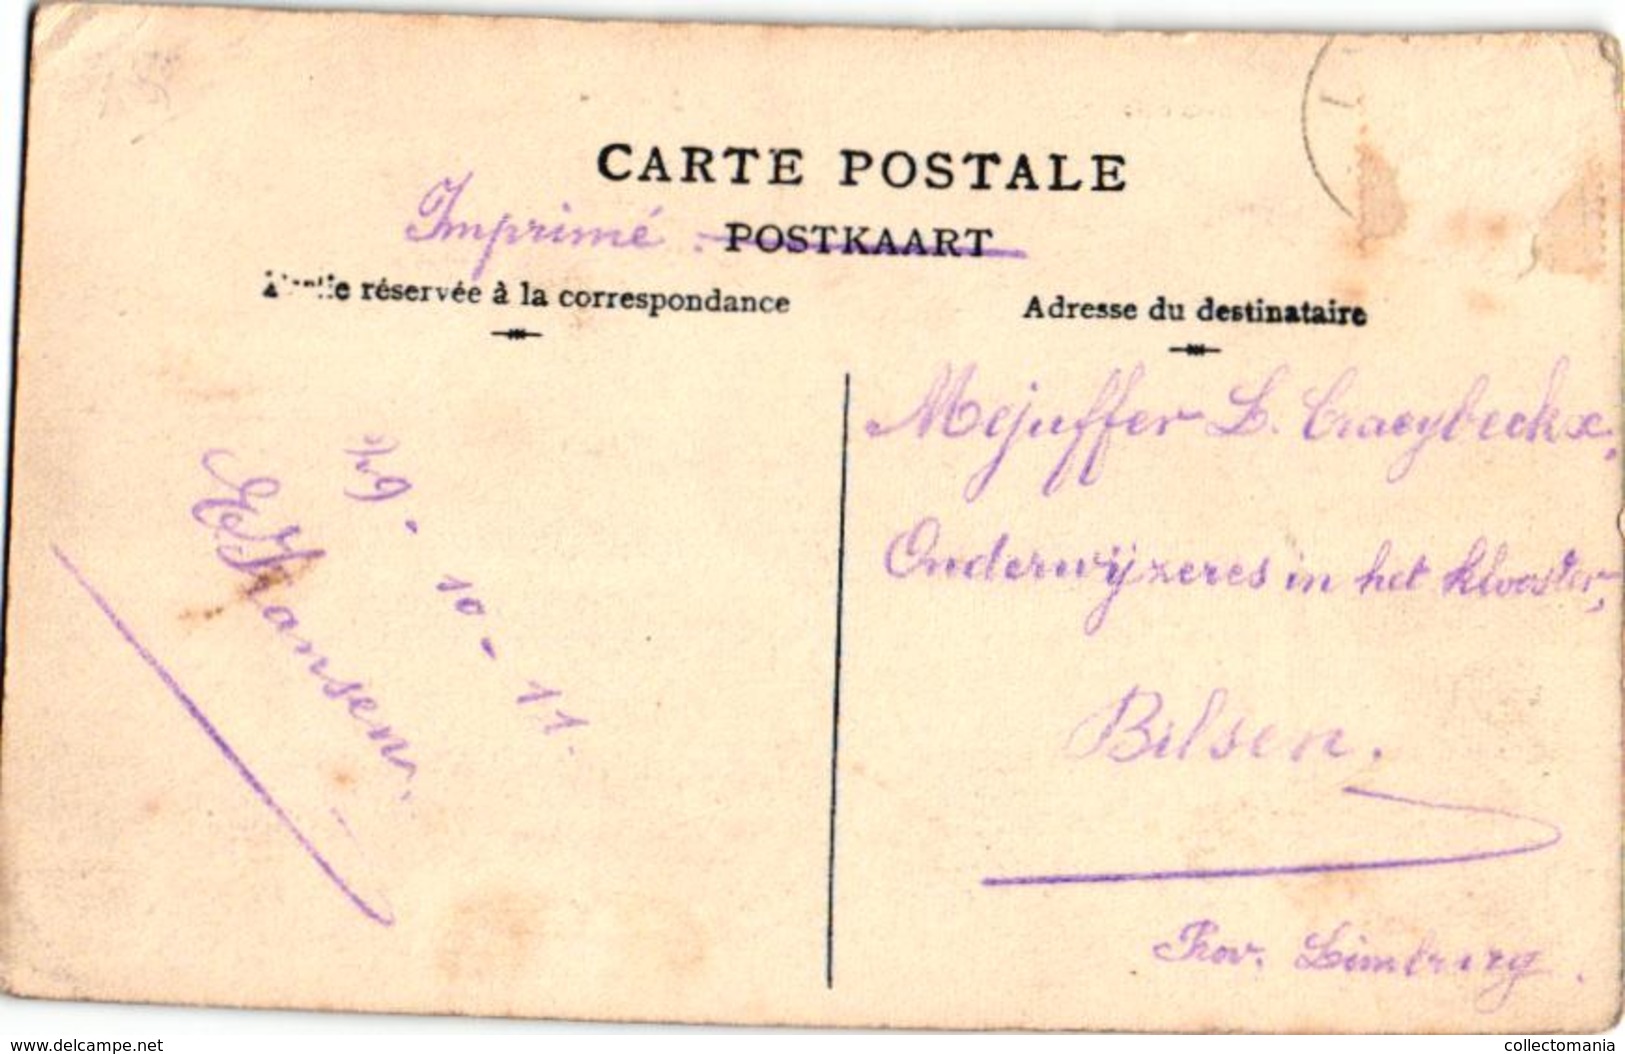 CARTE POSTALE
Imprimé. POSTKAART
réservée à la correspondance
Adresse du destinataire
Mejuffer L. Craeybeckx,
Onderwijzeres in het klooster,
Bilsen.
Prov. Limburg.
29-10-11.
E Hansen.
www.delcampe.net
collectomania